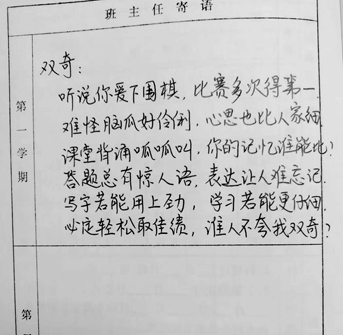 班主任寄语
第一学期
双奇：
听说你爱下围棋，比赛多次得第一，
难怪脑瓜好伶俐，心思也比人家细，
课堂背诵呱呱叫，你的记忆谁能比？
答题总有惊人语，表达让人难忘记，
写字若能用上劲，学习若能更仔细，
必定轻松取佳绩，谁人不夸我双奇？
第